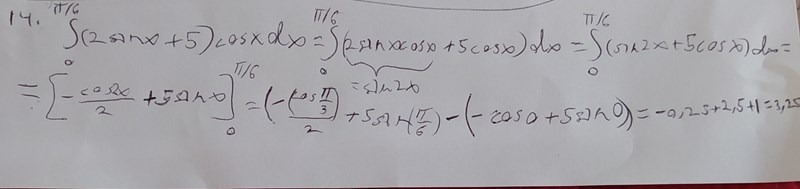 14. ∫₀^{π/6} (2sinx+5)cosxdx = ∫₀^{π/6} (2sinxcosx+5cosx)dx = ∫₀^{π/6} (sin2x+5cosx)dx=
=sin2x
= [-cos2x/2 + 5sinx]₀^{π/6} = (-(cos π/3)/2 + 5sin(π/6) - (-cos0+5sin0) = -0,25+2,5+1=3,25